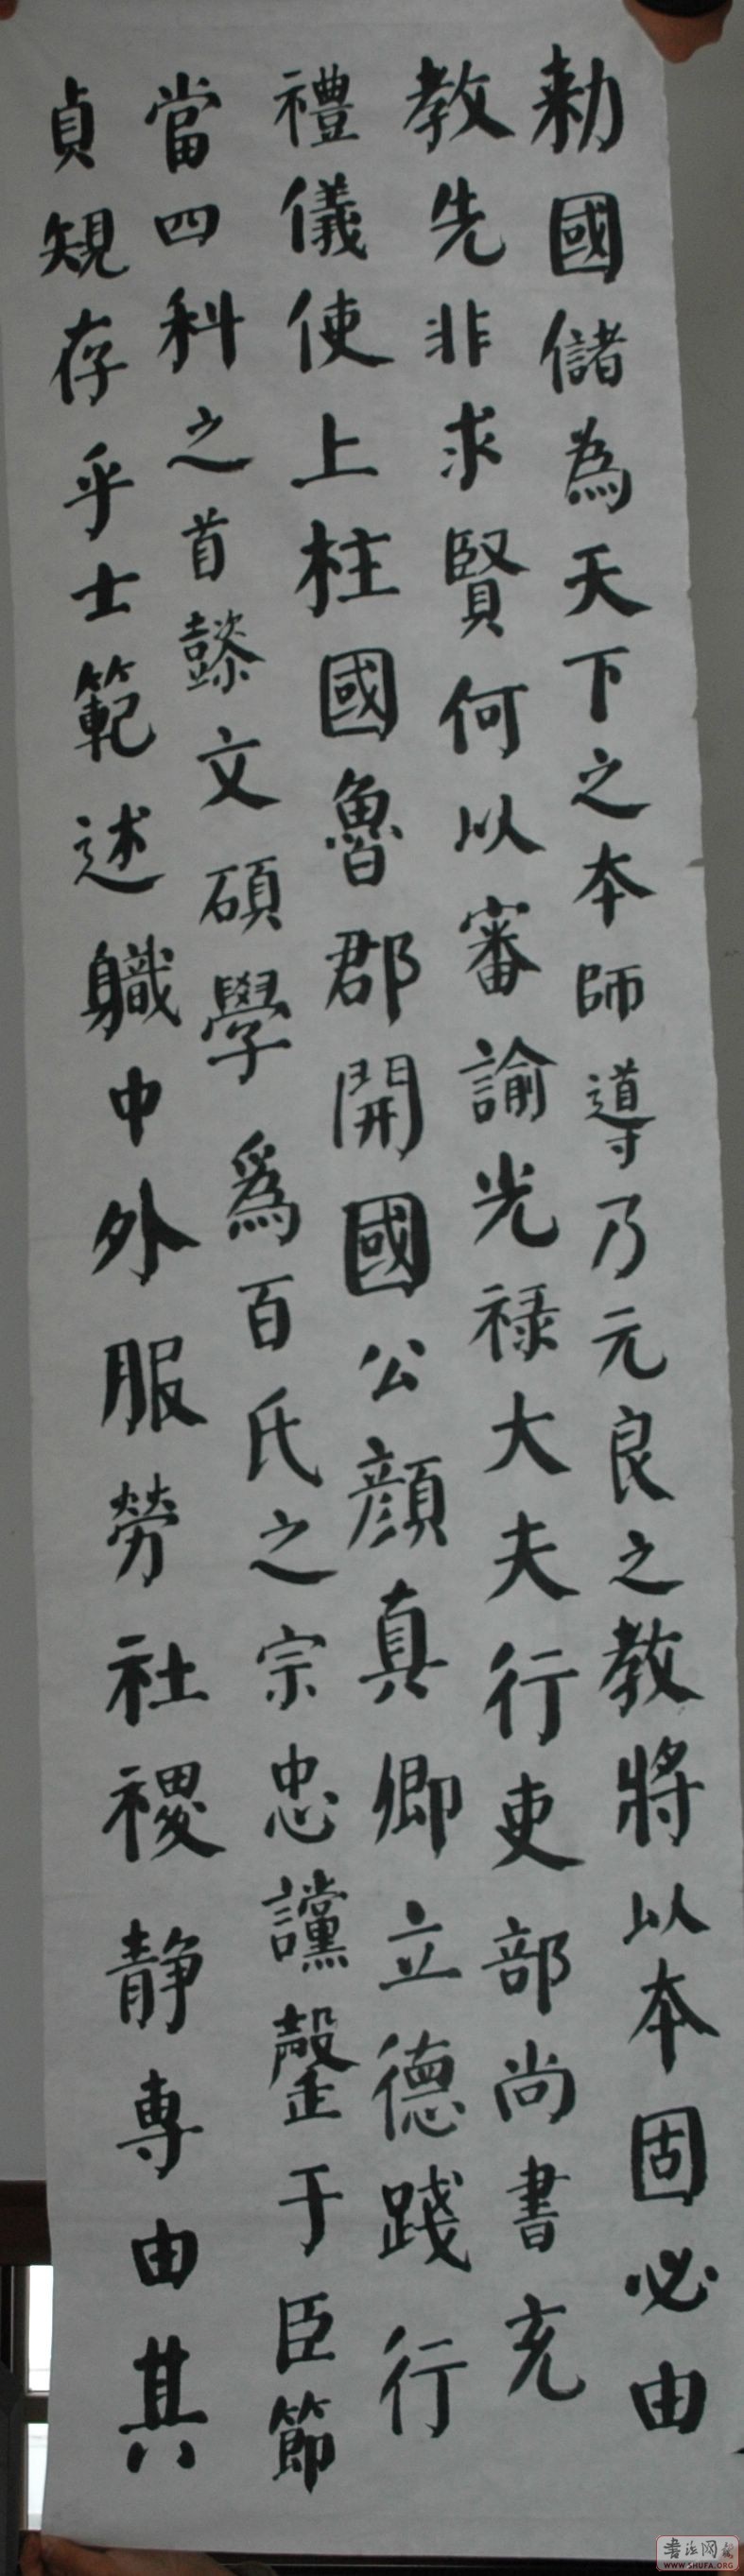 勑國儲為天下之本師導乃元良之教將以本固必由
教先非求賢何以審諭光禄大夫行吏部尚書充
禮儀使上柱國魯郡開國公顔真卿立德踐行
當四科之首懿文碩學為百氏之宗忠讜罄于臣節
貞規存乎士範述職中外服勞社稷静專由其
書法网
WWW.SHUFA.ORG